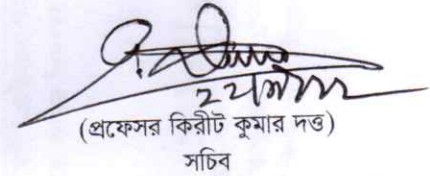 (প্রফেসর কিরীট কুমার দত্ত)
সচিব